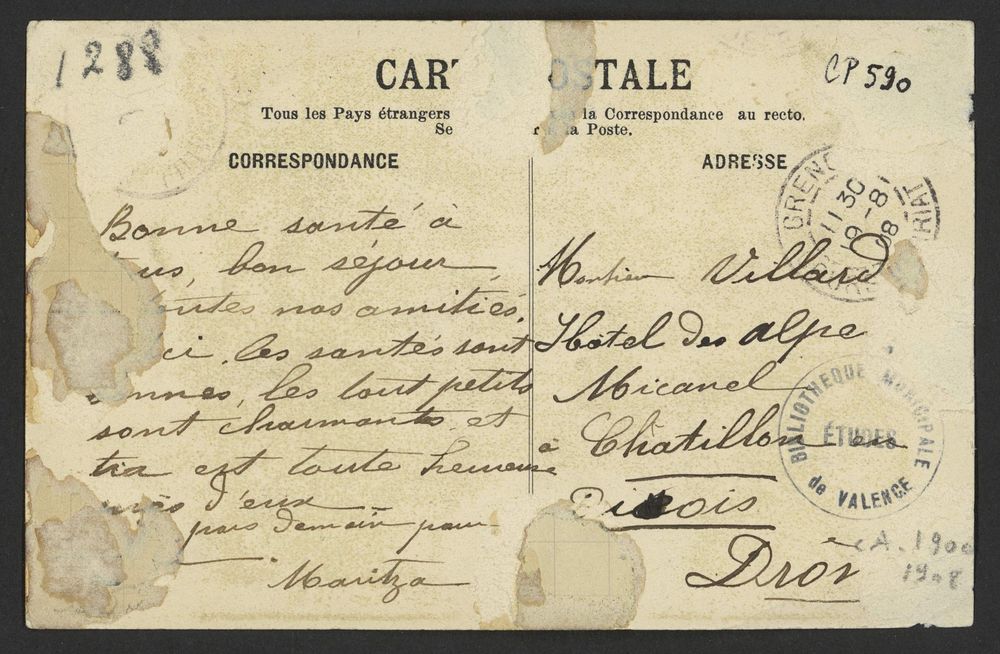 1288
CP 590
CAR STALE
Tous les Pays étrangers la Correspondance au recto.
Se la Poste.
CORRESPONDANCE
ADRESSE
GREN
11 30
19-8
08
RIAT
Bonne santé à
bon séjour
nos amitiés.
ici, les santés sont
les tout petits
sont charmants et
est toute heureuse
d'eux
demain pour
Maritza
Villard
Hotel des alpe
Micanel
à Chatillon en
Diois
Drô
BIBLIOTHEQUE MUNICIPALE
ÉTUDES
de VALENCE
CA. 1900
1908